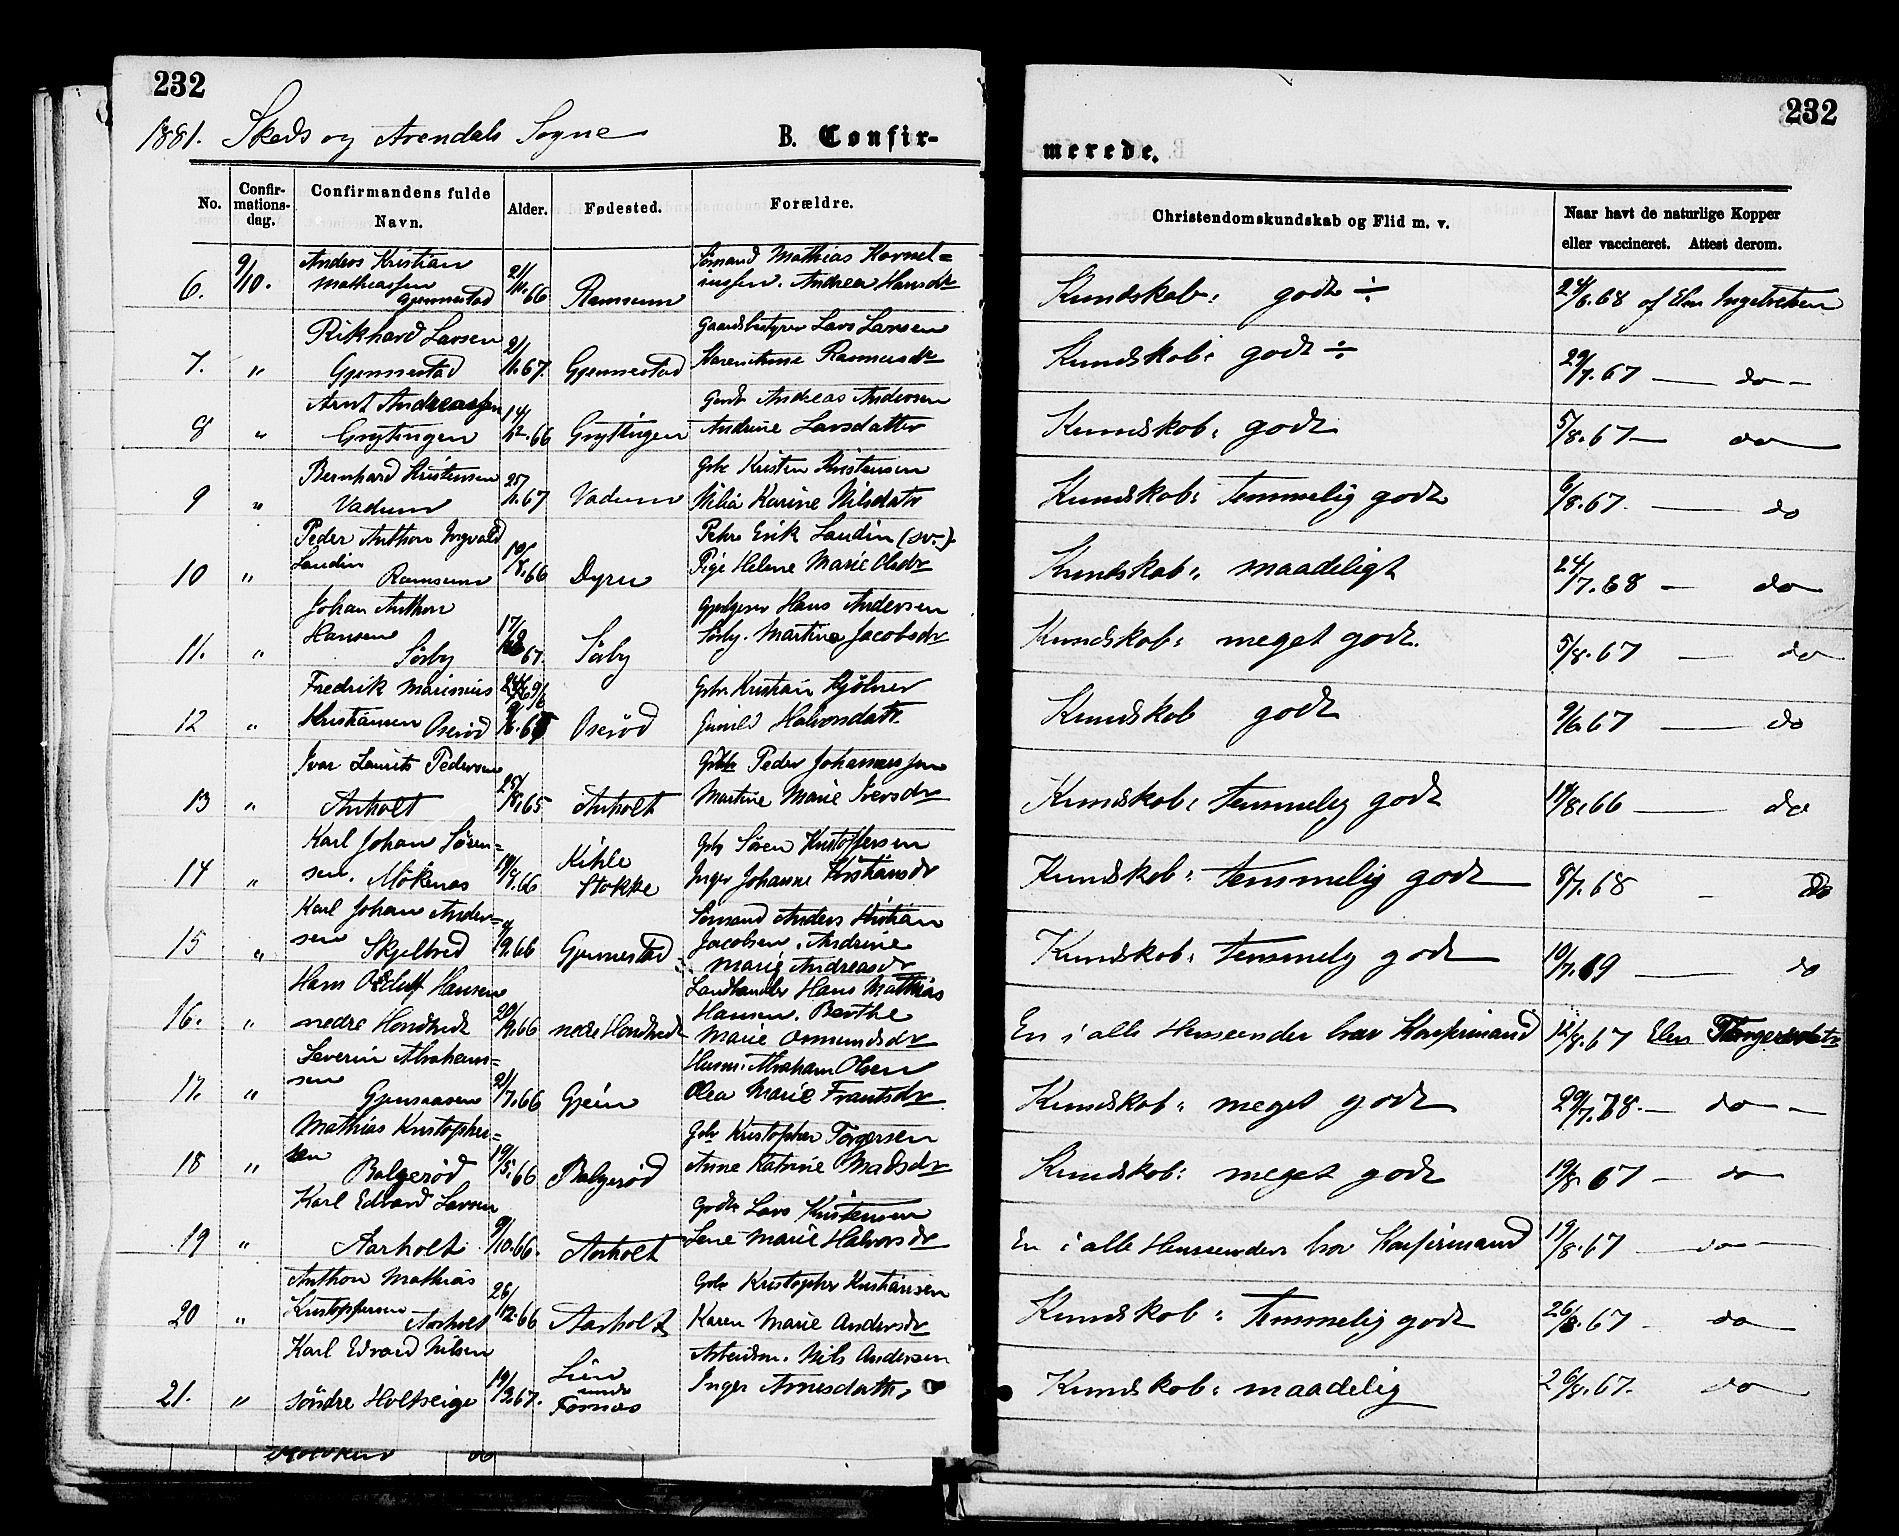 232
232
1881. Skeds og Arendals Sogne
B. Confir-
merede.
No.
Confir-
mations-
dag.
Confirmandens fulde
Navn.
Alder.
Fødested.
Forældre.
Christendomskundskab og Flid m. v.
Naar havt de naturlige Kopper
eller vaccineret. Attest derom.
Anders Kristian
Mathiassen
Gjennestad
Sömand Mathias Kornel=
iussen. Andrea Hansdtr
6. 9/10. 21/11.66 Ramsum Kundskab: godt ÷ 24/6.68 af Elen Ingebretsen
Rikhard Larsen Gaardbestyrer Lars Larsen
7. " Gjennestad 2/1.67. Gjennestad Karen Anne Rasmusdtr Kundskab: godt ÷ 29/7.67 — do —
Arnt Andreassen Gaardbr Andreas Andersen
8 " Grytingen 14/12.66 Gryttingen Andrine Larsdatter Kundskab: godt 5/8.67 — do
Bernhard Kristensen Gbr Kristen Kristensen
9 " Vadum 25/1.67 Vadum Karine Nilsdatr Kundskab: temmelig godt 6/8.67. — do
Peder Anthon Ingvald Erik Landin (sv.)
Landin
10 " Ramsum 19/8.66 Dyrsø Pige Helene Marie Olsdtr Kundskab: maadeligt 24/7.68 — do
Johan Anthon Hans Andersen
Hansen Sörby. Martine Jacobsdtr
11. " Sörby 17/ 67. Sörby Kundskab: meget godt. 5/8.67 — do
Fredrik Marinius Gbr Kristian
12 " Kristiansen Oseröd Oseröd Gunild Halvorsdatr. Kundskab godt 9/6.67 — do
Ivar Laurits Pedersen Gbr Peder Johannessen
13 " Anholt 25/8.65 Anholt Martine Marie Iversdtr Kundskab: temmelig godt 19/8.66 — do
Karl Johan Sören= Gbr Sören Kristoffersen
sen. Mökenæs
14 " 19/9.66 Kihle
Stokke Inger Johanne Kristiansdr Kundskab: temmelig godt 8/7.68 - do
Karl Johan Ander= Sömand Anders Kristian
sen Skjelbred
15 " 9/9.66 Gjennestad Jacobsen. Andrine
Marie Andreasdr Kundskab: temmelig godt 10/7.69 — do
Hans Hansen Landhandler Hans Mathias
16. " nedre Hondhedt 20/9.66 nedre Hondhedt Hansen. Berthe
Marie Osmundsdr En i alle Henseender brav Konfirmand 12/8.67 Elen
Severin Abraham= Husm: Abraham Olsen
sen
17. " Gjensaasen 21/7.66 Gjein Olea Marie Frantsdr Kundskab: meget godt 29/7.78. — do —
Mathias Kristopher= Gbr Kristopher Torgersen
sen
18 " Bolgeröd 19/5.66 Bolgeröd Anne Katrine Madsdr Kundskab: meget godt 19/8.67 — do
Karl Edvard Larsen Gbr Lars Kristensen
19 " Aarholt 9/10.66. Aarholt Lene Marie Halvorsdr En i alle Henseender brav Konfirmand 19/8.67 — do
Anthon Mathias Gbr Kristopher Kristiansen
20 " Kristoffersen Aarholt 26/12.66 Aarholt Karen Marie Andersdr Kundskab: temmelig godt 26/8.67 — do
Karl Edvard Nilsen Arbeidsm. Nils Andersen
21. " söndre Holtseige 19/2.67. Lien
under
Fornæs Inger Arnesdatter Kundskab: maadelig 26/8.67. do
do